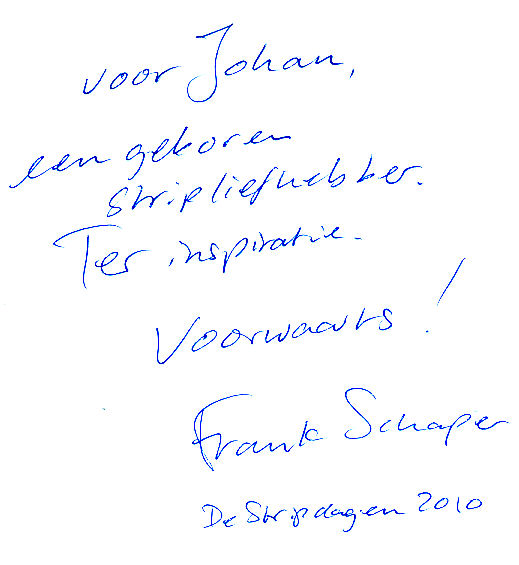 voor Johan,
een geboren
stripliefhebber.
Ter inspiratie.
Voorwaarts!
Frank Schaper
De Stripdagen 2010